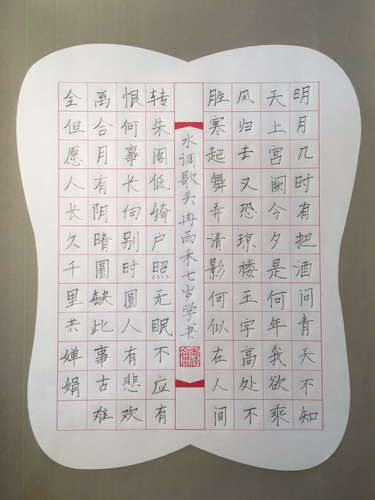 明月几时有把酒问青天不知
天上宫阙今夕是何年我欲乘
风归去又恐琼楼玉宇高处不
胜寒起舞弄清影何似在人间
水调歌头冉雨禾七岁学书
转朱阁低绮户照无眠不应有
恨何事长向别时圆人有悲欢
离合月有阴晴圆缺此事古难
全但愿人长久千里共婵娟